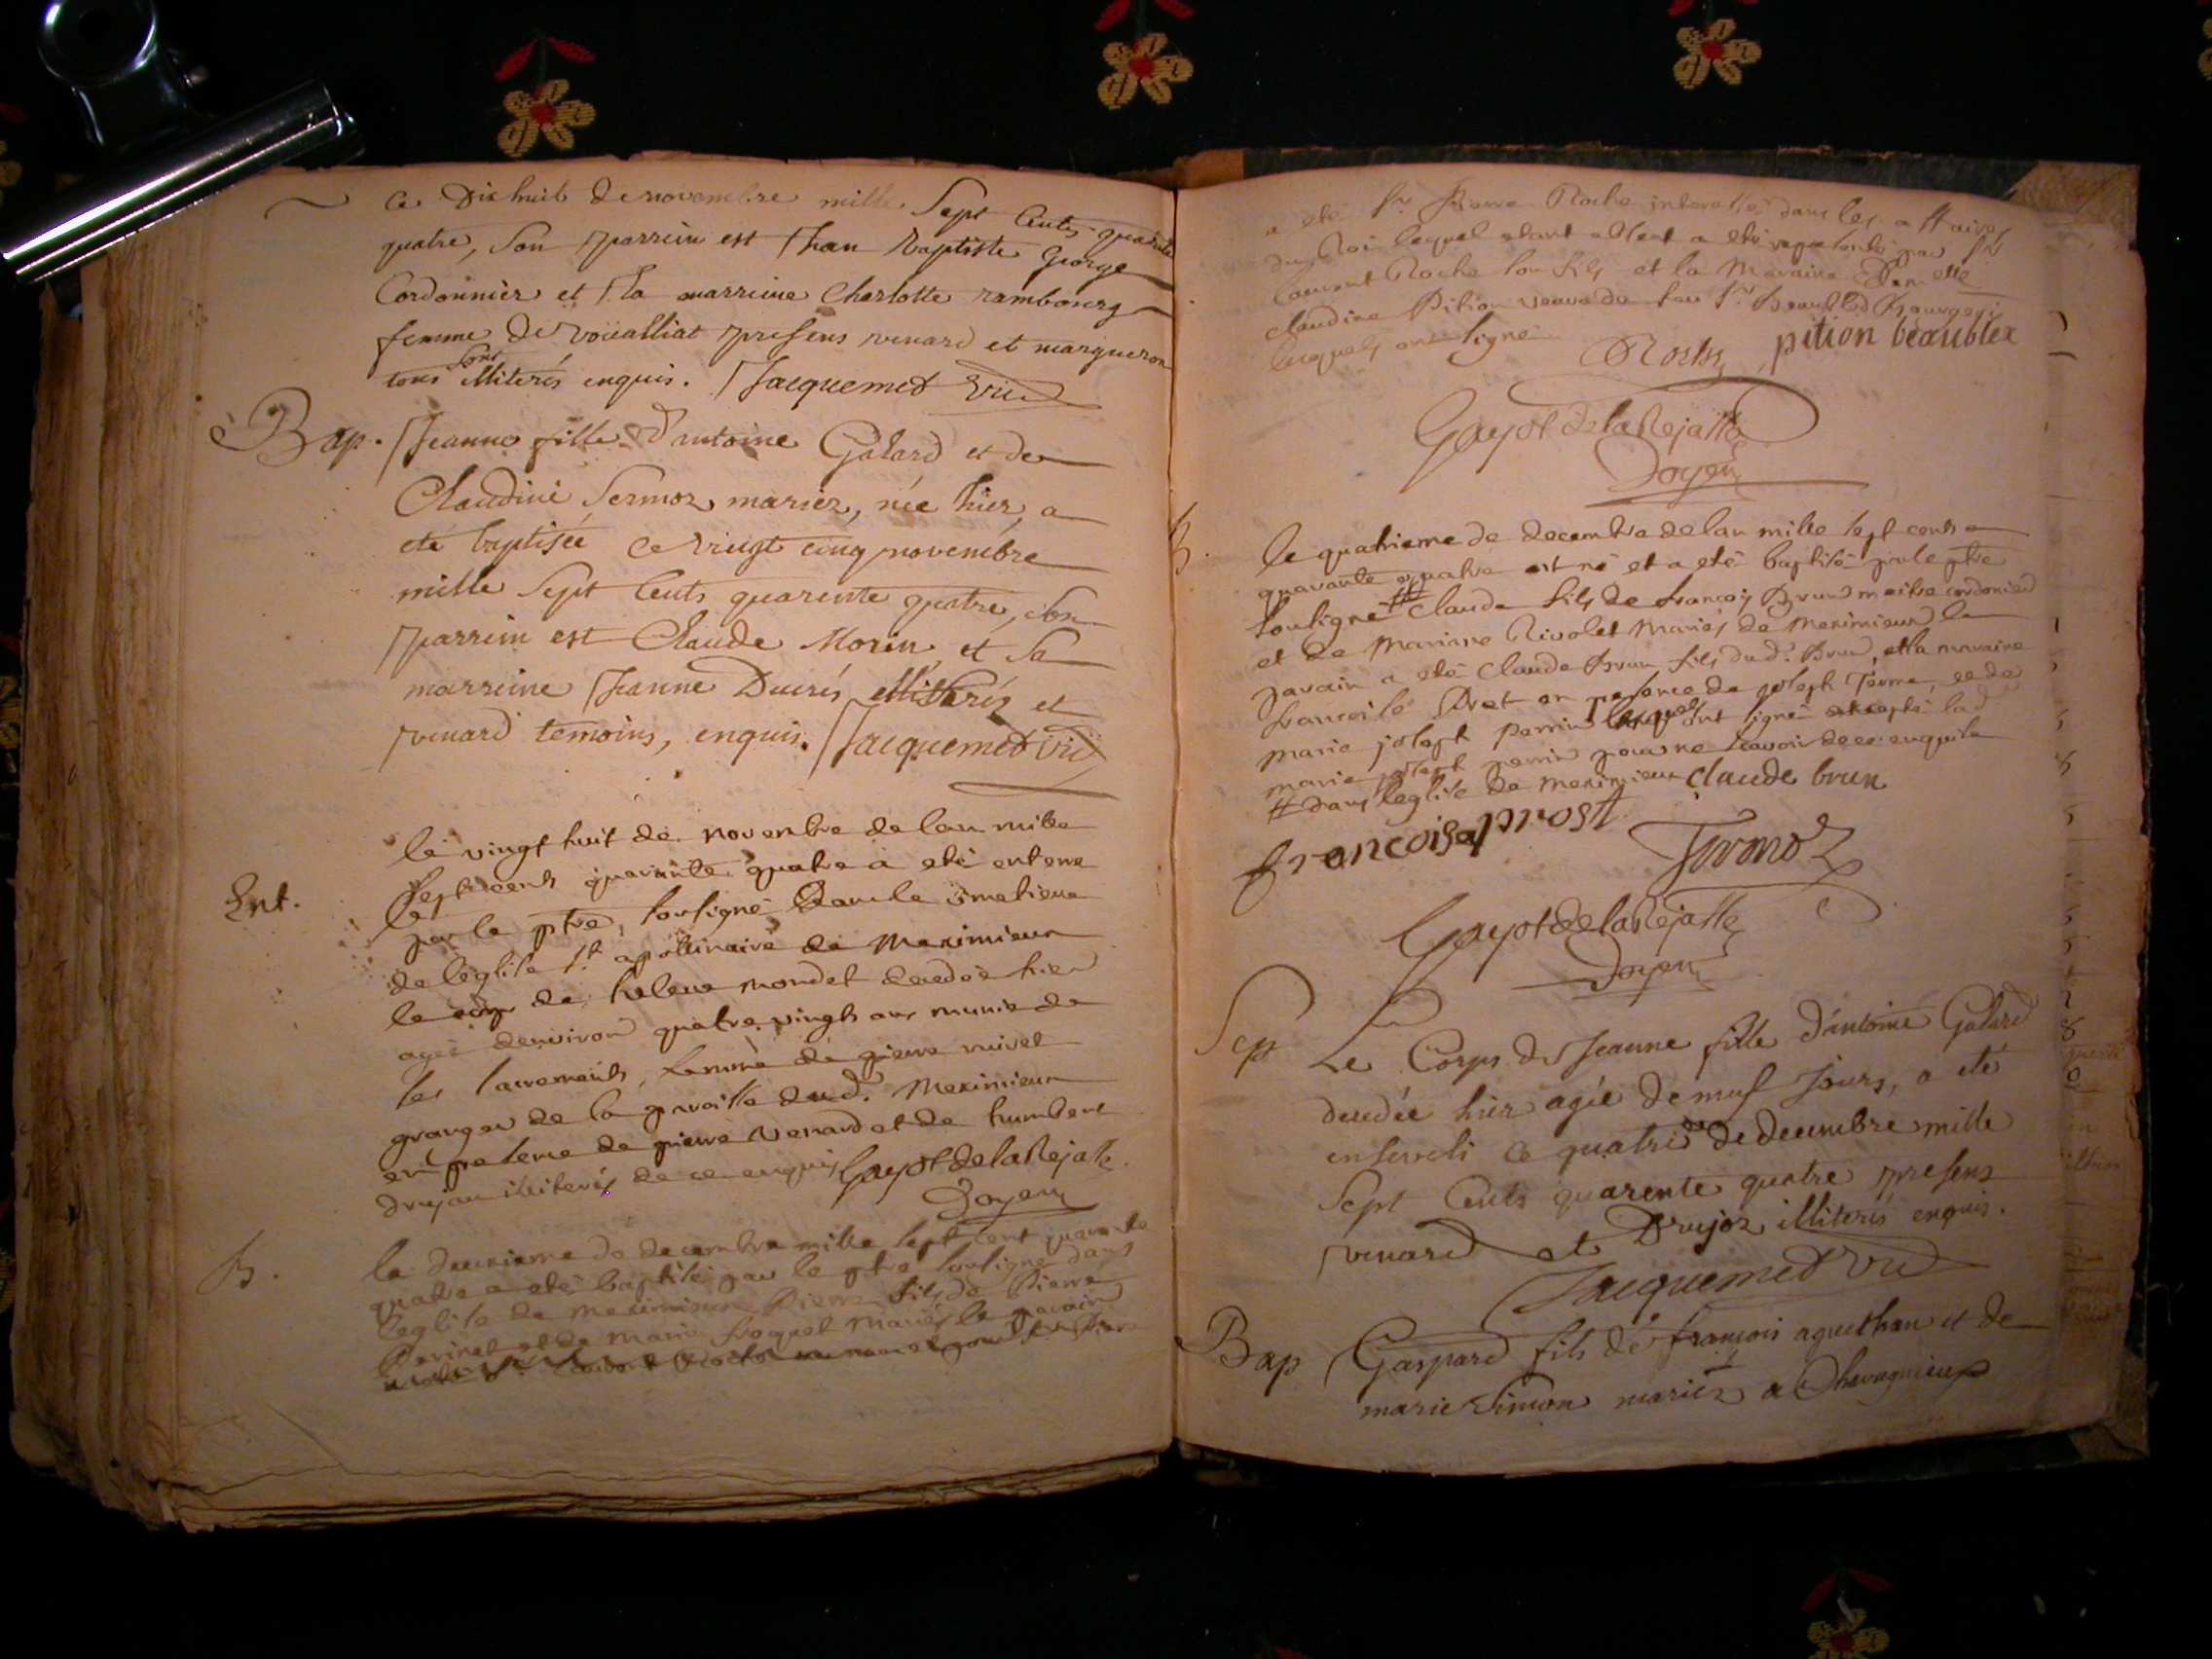 ce Dixhuit de novembre mille Sept Cents quarente
quatre, Son parrein est Jean Baptiste George
Cordonnier et Sa marreine Charlotte rambourg
femme de voüalliat presens venard et margueron
tous illiterés enquis. Jacquemet vic
Bap. Jeanne fille d'antoine Galard et de
Claudine Sermoz mariez, née hier, a
eté baptisée ce vingt cinq novembre
mille Sept Cents quarente quatre, Son
parrein est Claude Morin et Sa
marreine Jeanne Ducrés illiterés et
venard temoins, enquis. Jacquemet vic
le vingt huit de novembre de lan mille
Ent. Sept cents quarante quatre a eté enterré
par le ptre, soussigné Dans le simetiere
de leglise St. apollinaire de Meximieux
le corp de helene mondet decedeé hier
ageé denviron quatre vingts ans munie de
ses sacrements, femme de pierre nivet
granger de la paroisse dud. Meximieux
en presence de pierre venard et de humbert
drujan illiterés de ce enquis Gayot de la Rejasse
Doyen
B. le deuxieme de decembre mille sept cent quarante
quatre a eté baptisé par le ptre soussigné dans
leglise de meximieux Pierre fils de Pierre
et de marie mariés le parain
a eté Sr. Pierre Roche interessé dans les affaires
du Roi lequel etant absent a eté representé par Sr
laurent Roche son fils et la Maraine Demelle
claudine Pition veuve de feu Sr. beaubled Bourgeois
lesquels ont signé
Roche pition beaublez
Gayot de la Rejasse
Doyen
B. le quatrieme de decembre de lan mille sept cents
quarante quatre est né et a eté baptisé par le ptre
soussigné # Claude fils de francois Brun maitre cordonier
et de Mariane Rivolet Mariés de meximieux le
parain a eté Claude Brun fils dud. Brun, et la maraine
francoise Prot en presence de joseph Termoz, et de
marie joseph Perrin lesquels ont signé excepté lad
marie joseph perrin pour ne scavoir de ce enquise
# dans leglise de meximieux claude brun
francoise prost Termoz
Gayot de la Rejasse
Doyen
Sep Le Corps de Jeanne fille d'antoine Galard
decedée hier agée de neuf Jours, a eté
enseveli ce quatrie me de decembre mille
Sept Cents quarente quatre presens
venard et Drujoz illiterés enquis.
Jacquemet vic
Bap Gaspard fils de francois aguethan et de
marie Simon mariez a Chavagnieux